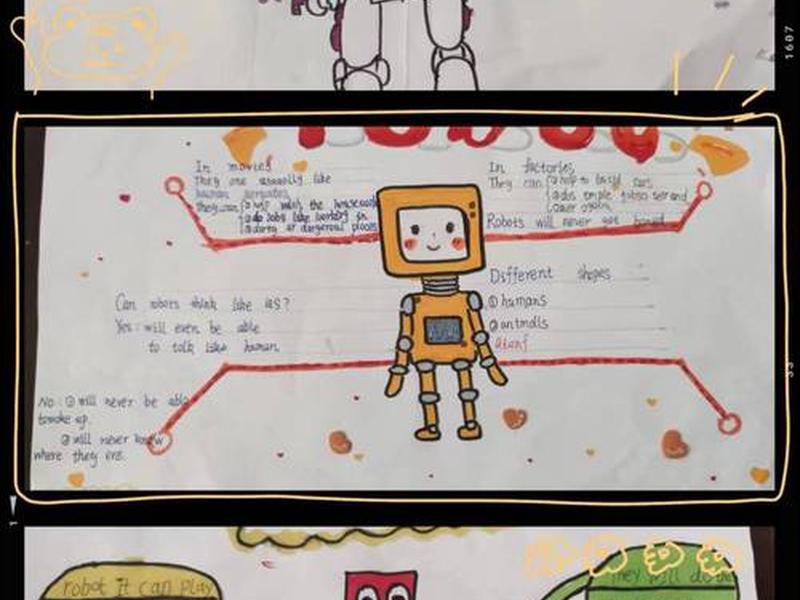 In movies
They are usually like
human servants
They can ① help with the housework
② do jobs like working in
③ dirty or dangerous places
In factories
They can ① help to build cars
② dos simple jobs over and
over again
Robots will never get bored
Different shapes
① humans
② anímals
Can robots think like us?
Yes: will even be able
to talk like human
No: ① will never be able
towake up.
② will never know
where they are.
robot it can play
They will do the
1607
33